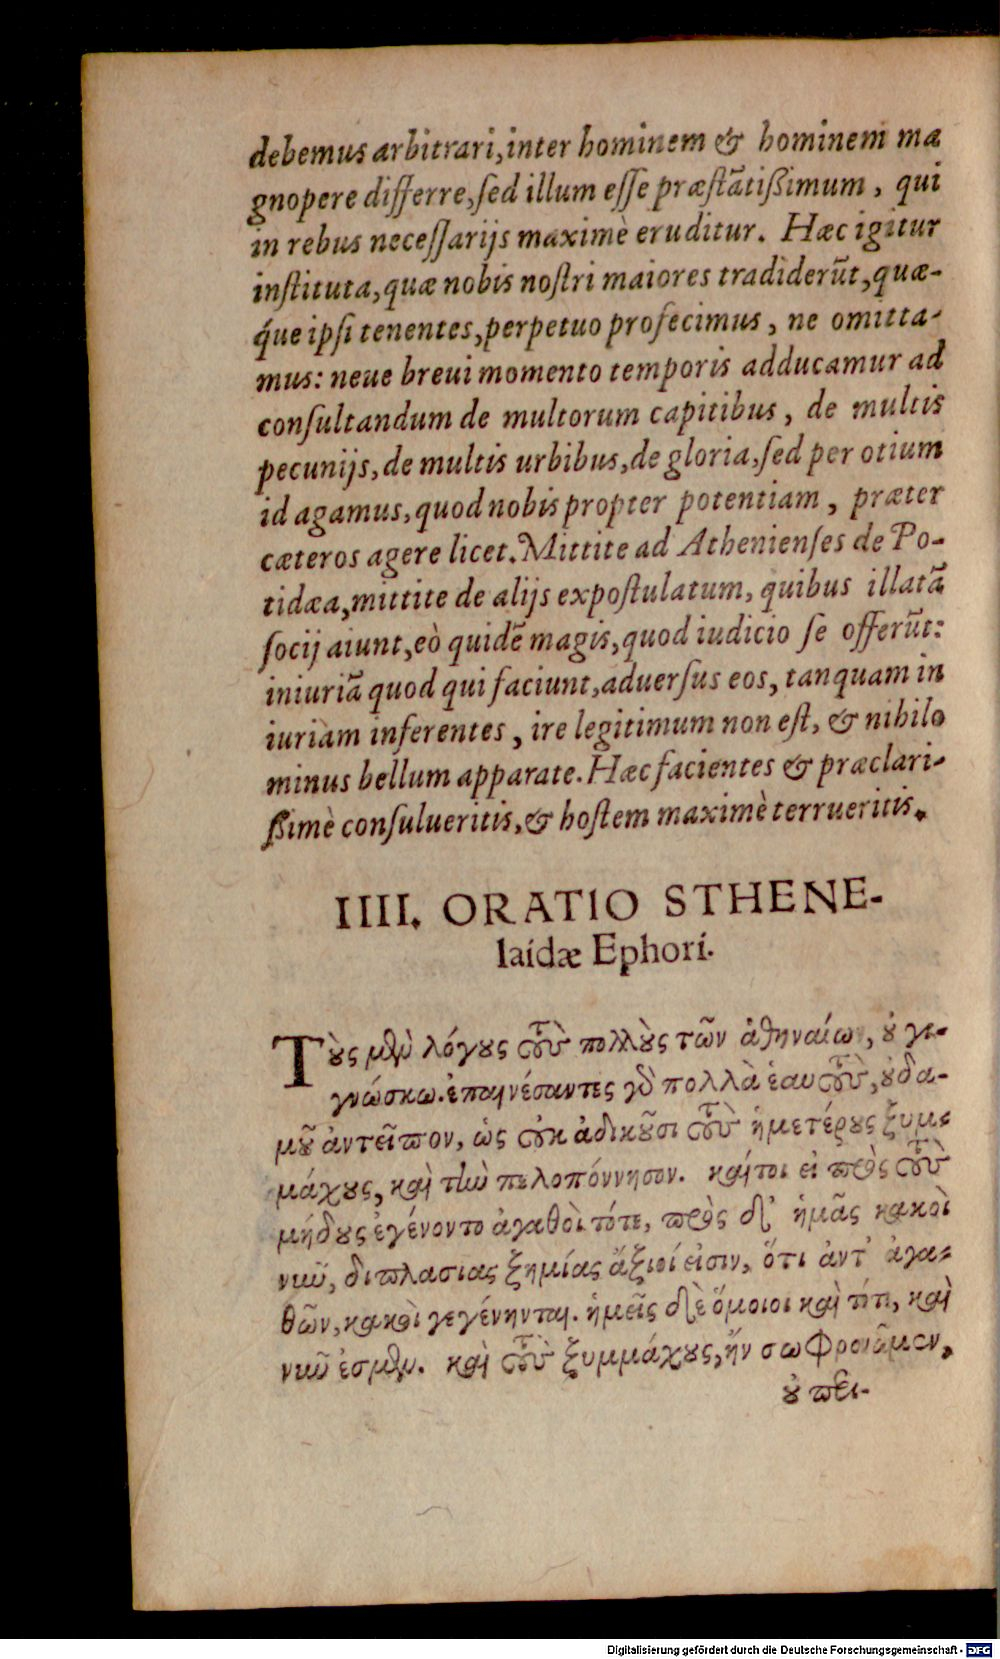 debemus arbitrari, inter hominem & hominem ma
gnopere differre, ſed illum eſſe præſtãtißimum, qui
in rebus neceſſarijs maximè eruditur. Hæc igitur
inſtituta, quæ nobis noſtri maiores tradiderũt, quæ-
q́ue ipſi tenentes, perpetuo profecimus, ne omitta-
mus: neue breui momento temporis adducamur ad
conſultandum de multorum capitibus, de multis
pecunijs, de multis urbibus, de gloria, ſed per otium
id agamus, quod nobis propter potentiam, præter
cæteros agere licet. Mittite ad Athenienſes de Po-
tidæa, mittite de alijs expoſtulatum, quibus illatã
ſocij aiunt, eò quidẽ magis, quod iudicio ſe offerũt:
iniuriã quod qui faciunt, aduerſus eos, tanquam in
iuriam inferentes, ire legitimum non eſt, & nihilo
minus bellum apparate. Hæc facientes & præclari-
ßimè conſulueritis, & hoſtem maximè terrueritis.
IIII. ORATIO STHENE-
laidæ Ephori.
Τοὺς μὲν λόγους τοὺς πολλοὺς τῶν ἀθηναίων, οὐ γι-
γνώσκω. ἐπαινέσαντες γὰρ πολλὰ ἑαυτοὺς, οὐδα-
μοῦ ἀντεῖπον, ὡς οὐκ ἀδικοῦσι τοὺς ἡμετέρους ξυμ-
μάχους, καὶ τὴν πελοπόννησον. καίτοι εἰ πρὸς τοὺς
μήδους ἐγένοντο ἀγαθοὶ τότε, πρὸς δ' ἡμᾶς κακοὶ
νῦν, διπλασίας ζημίας ἄξιοί εἰσιν, ὅτι ἀντ' ἀγα-
θῶν, κακοὶ γεγένηνται. ἡμεῖς δὲ ὅμοιοι καὶ τότε, καὶ
νῦν ἐσμεν. καὶ τοὺς ξυμμάχους, ἢν σωφρονῶμεν,
οὐ περι-
Digitalisierung gefördert durch die Deutsche Forschungsgemeinschaft - DFG